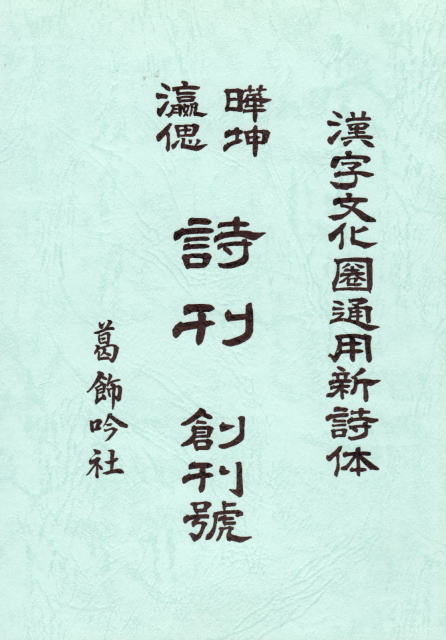 漢字文化圏通用新詩体
曄坤
瀛偲
詩刊 創刊號
葛飾吟社